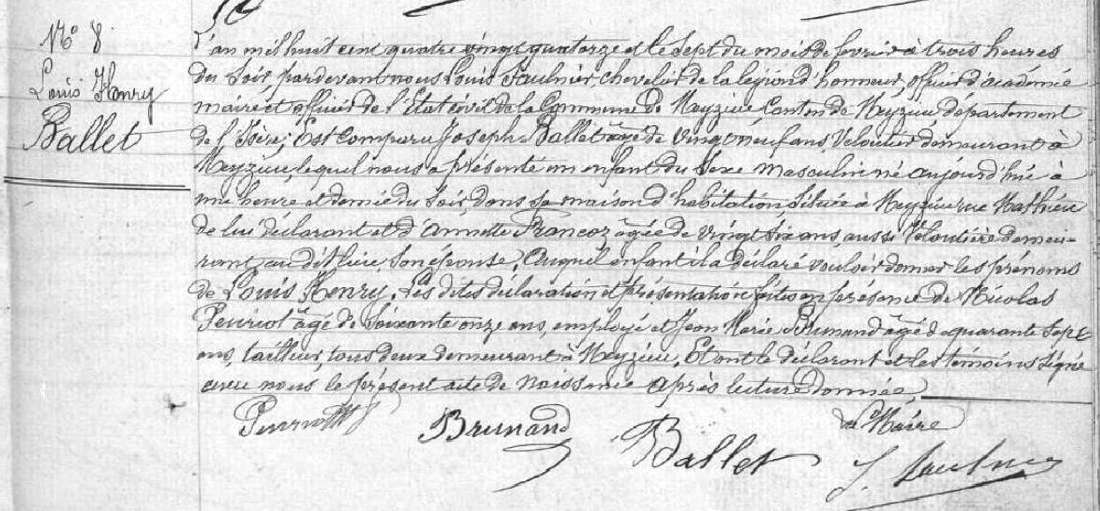 N° 8
Louis Henry
Ballet
L'an mil huit cent quatre vingt quatorze et le sept du mois de fevrier à trois heures
du soir, pardevant nous Louis Saulnier, chevalier de la légion d'honneur, officier d'académie
maire et officier de l'Etat civil de la Commune de Meyzieu, Canton de Meyzieu département
de l'Isère; Est comparu Joseph Ballet âgé de vingt neuf ans, Veloutier demeurant à
Meyzieu, lequel nous a présenté un enfant du sexe masculin né aujourd'hui à
une heure et demie du soir, dans sa maison d'habitation située à Meyzieu rue Mathieu
de lui déclarant et d'Annette Francoz âgée de vingt six ans, aussi Veloutière demeu-
rant au dit lieu, son épouse, Auquel enfant il a déclaré vouloir donner les prénoms
de Louis Henry. Les dites déclaration et présentation faites en présence de Nicolas
âgé de soixante onze ans, employé et Jean Marie Brunand âgé de quarante sept
ans, tailleur, tous deux demeurant à Meyzieu. Et ont le déclarant et les témoins signé
avec nous le présent acte de naissance après lecture donnée,
Le Maire
Brunand
Ballet